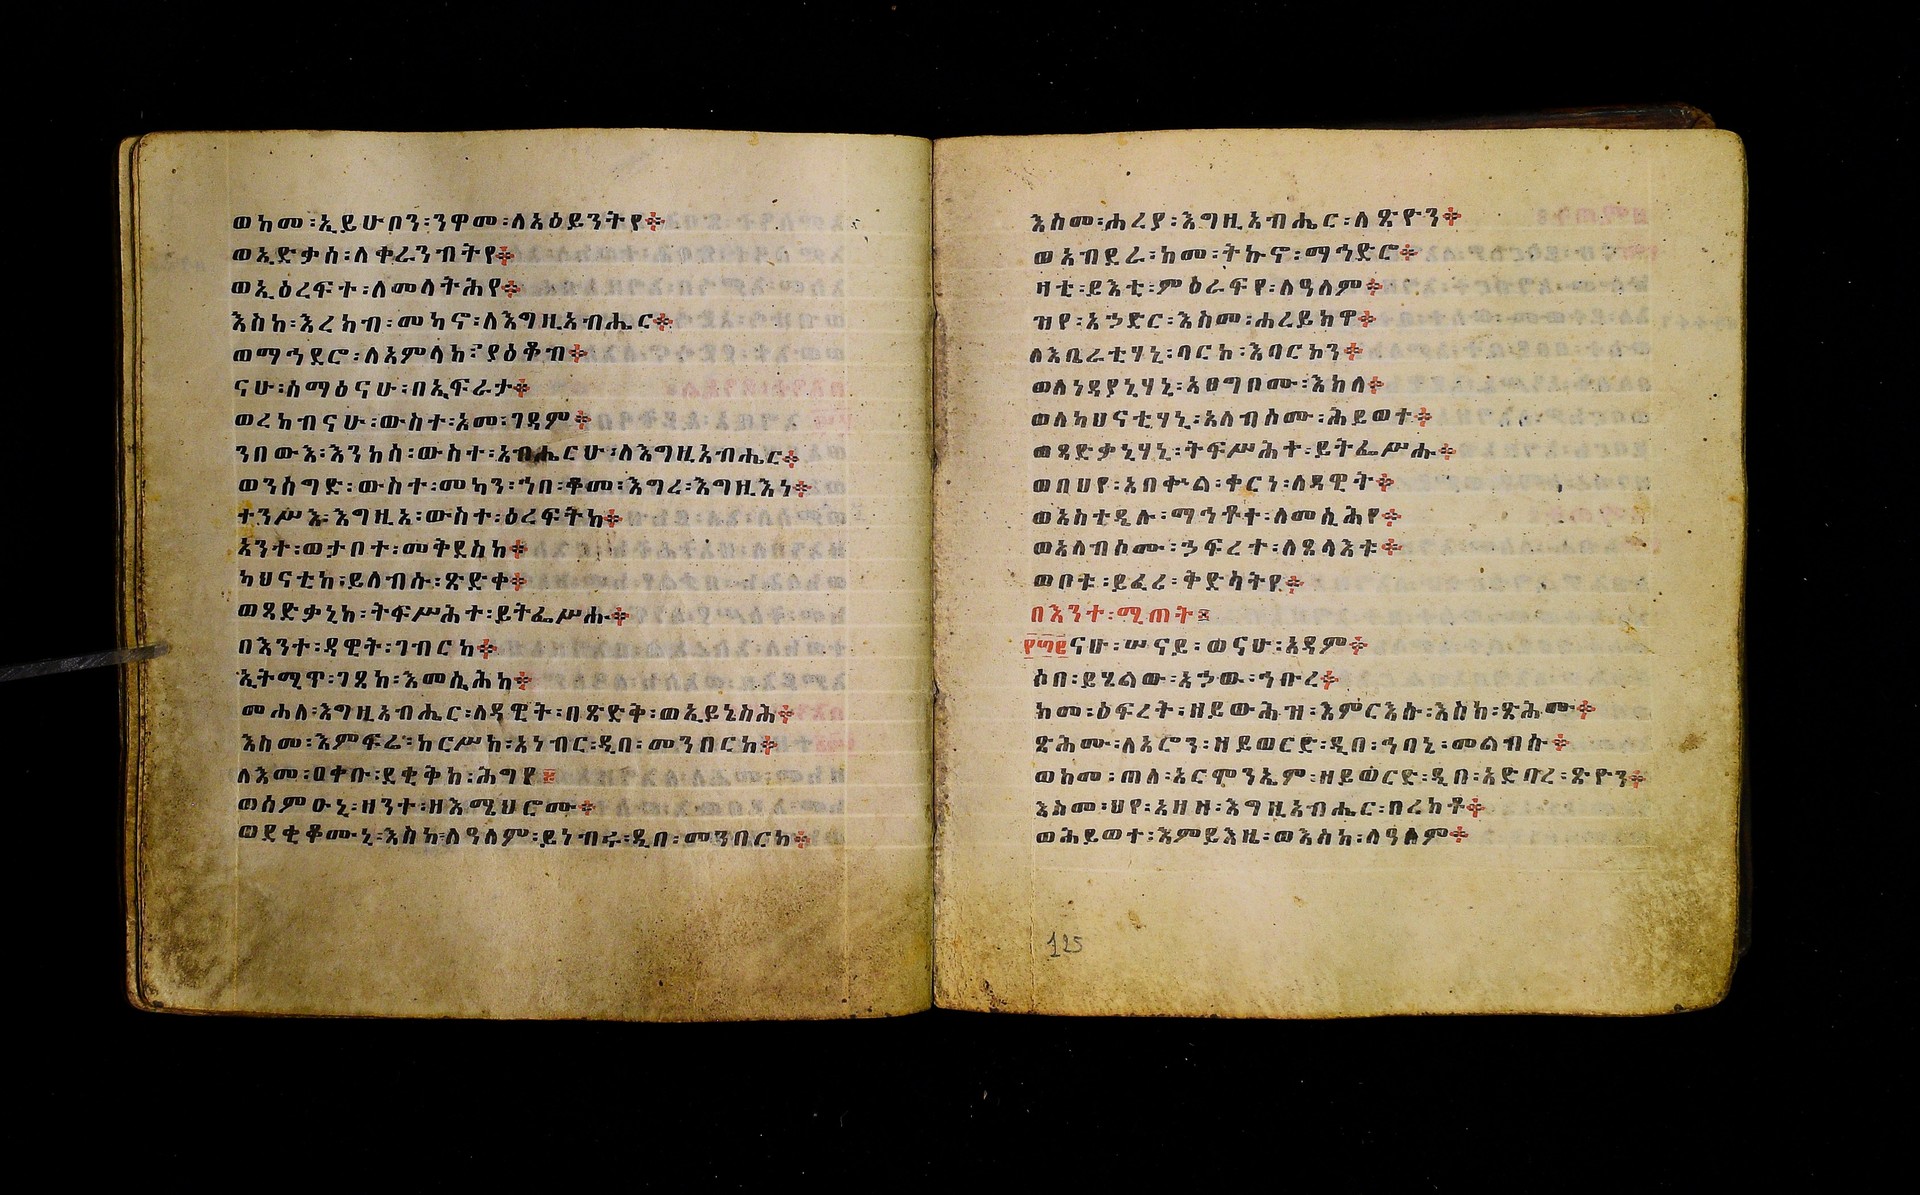 ወከመ፡ኢይሁቦን፡ንዋመ፡ለአዕይንትየ።
ወኢድቃስ፡ለቀራንብትየ።
ወኢዕረፍተ፡ለመላትሕየ።
እስከ፡እረክብ፡መካኖ፡ለእግዚአብሔር።
ወማኅደሮ፡ለአምላከ፡ያዕቆብ።
ናሁ፡ሰማዕናሁ፡በኤፍራታ።
ወረከብናሁ፡ውስተ፡አመ፡ገዳም።
ንበውእ፡እንከሰ፡ውስተ፡አብሔርሁ፡ለእግዚአብሔር።
ወንሰግድ፡ውስተ፡መካን፡ኀበ፡ቆመ፡እግረ፡እግዚእነ።
ተንሥእ፡እግዚአ፡ውስተ፡ዕረፍትከ።
አንተ፡ወታቦተ፡መቅደስከ።
ካህናቲከ፡ይለብሱ፡ጽድቀ።
ወጻድቃኒከ፡ትፍሥሕተ፡ይትፌሥሑ።
በእንተ፡ዳዊት፡ገብርከ።
ኢትሚጥ፡ገጸከ፡እመሲሕከ።
መሐለ፡እግዚአብሔር፡ለዳዊት፡በጽድቅ፡ወኢይኔስሕ።
እስመ፡እምፍሬ፡ከርሥከ፡አነብር፡ዲበ፡መንበርከ።
ለእመ፡ዐቀቡ፡ደቂቅከ፡ሕግየ።
ወስምዑኒ፡ዘንተ፡ዘእሜህሮሙ።
ወደቂቆሙኒ፡እስከ፡ለዓለም፡ይነብሩ፡ዲበ፡መንበርከ።
እስመ፡ሐረያ፡እግዚአብሔር፡ለጽዮን።
ወአብደራ፡ከመ፡ትኩኖ፡ማኅድሮ።
ዛቲ፡ይእቲ፡ምዕራፍየ፡ለዓለም።
ዝየ፡አኃድር፡እስመ፡ሐረይክዋ።
ለእቤራቲሃኒ፡ባርኮ፡እባርከን።
ወለነዳያኒሃኒ፡አፀግቦሙ፡እክለ።
ወለካህናቲሃኒ፡አለብሶሙ፡ሕይወተ።
ወጻድቃኒሃኒ፡ትፍሥሕተ፡ይትፌሥሑ።
ወበህየ፡አበቍል፡ቀርነ፡ለዳዊት።
ወአስተዴሉ፡ማኅቶተ፡ለመሲሕየ።
ወአለብሶሙ፡ኃፍረተ፡ለጸላእቱ።
ወቦቱ፡ይፈሪ፡ቅድሳትየ።
በእንተ፡ሚጠት፡
፻፴፪ናሁ፡ሠናይ፡ወናሁ፡አዳም።
ሶበ፡ይሄልው፡አኃው፡ኅቡረ።
ከመ፡ዕፍረት፡ዘይውሕዝ፡እምርእሱ፡እስከ፡ጽሕሙ።
ጽሕሙ፡ለአሮን፡ዘይወርድ፡ዲበ፡ኀባኒ፡መልብሱ።
ወከመ፡ጠለ፡አርሞንኤም፡ዘይወርድ፡ዲበ፡አድባረ፡ጽዮን።
እስመ፡ህየ፡አዘዘ፡እግዚአብሔር፡በረከቶ።
ወሕይወተ፡እምይእዜ፡ወእስከ፡ለዓለም።
125